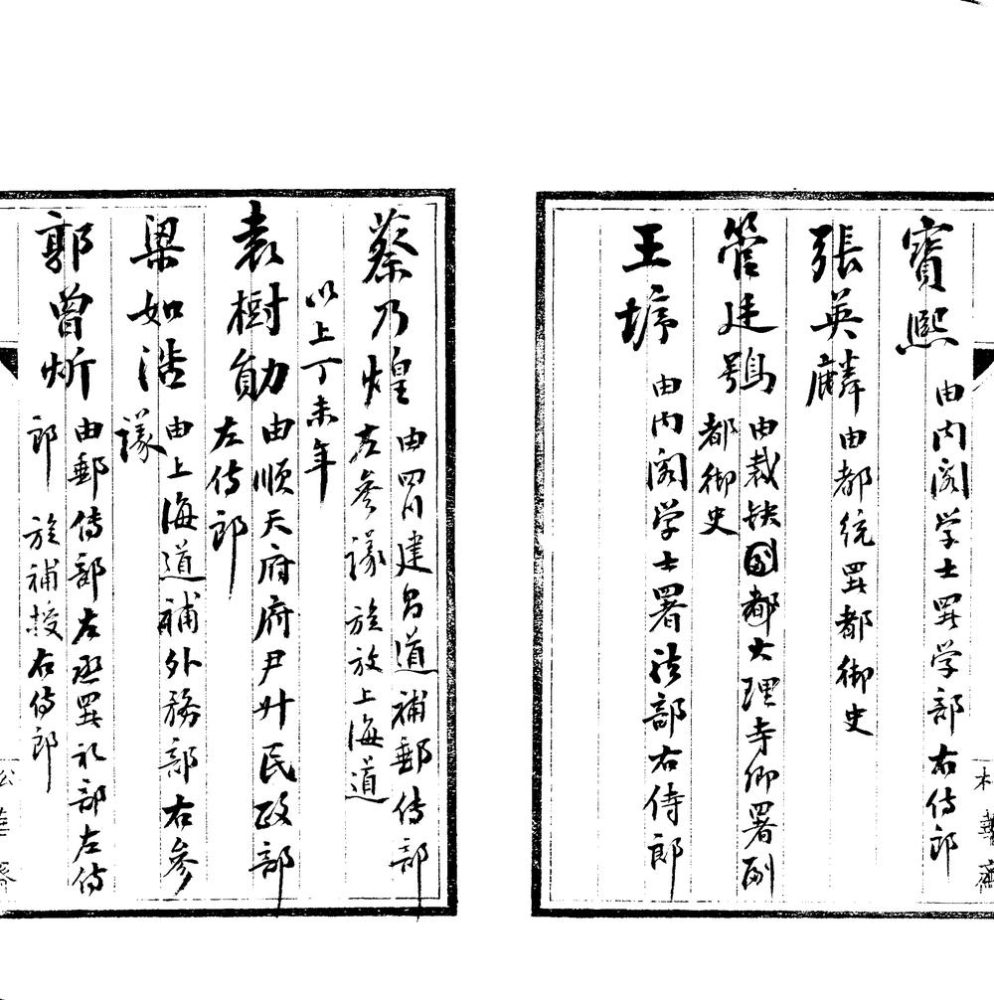 寶熙 由内阁学士署学部右侍郎
張英麟 由都统署都御史
管廷鶚 由裁缺國都大理寺卿署副
都御史
王垿 由内阁学士署法部右侍郎
蔡乃煌 由四川建昌道補郵傳部
左参議 旋放上海道
以上丁未年
袁樹勛 由順天府府尹升民政部
左侍郎
梁如浩 由上海道補外務部右参
議
郭曾炘 由郵傳部左丞署礼部左侍
郎 旋補授右侍郎